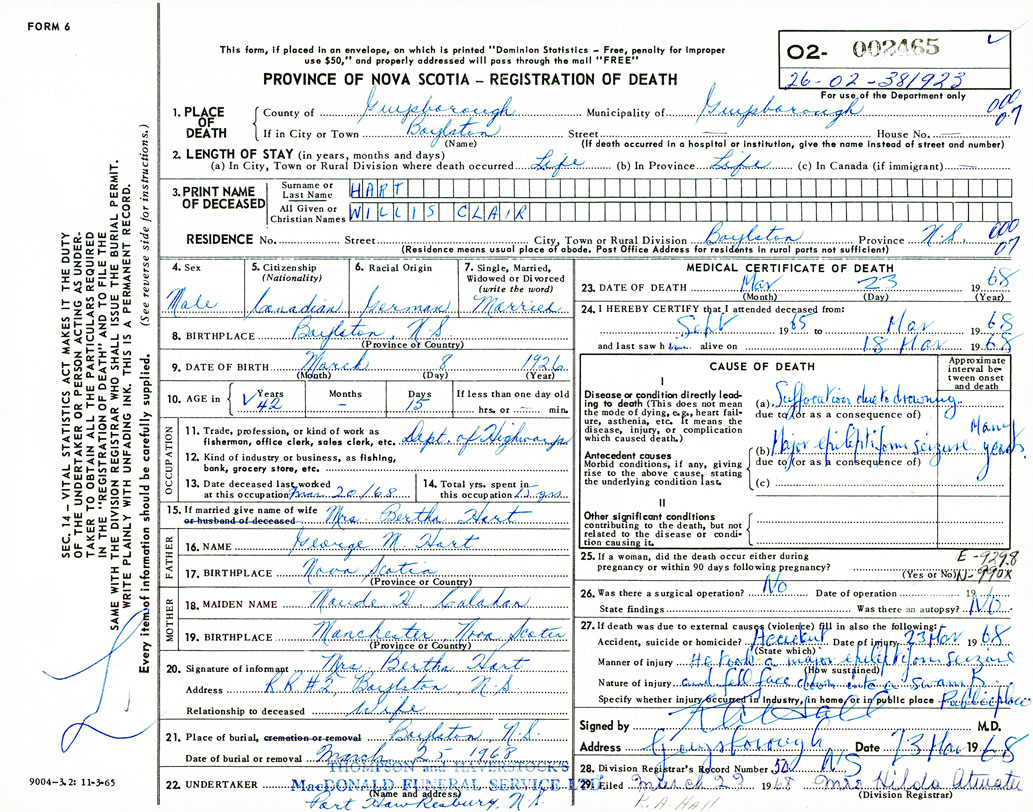 FORM 6
This form, if placed in an envelope, on which is printed "Dominion Statistics – Free, penalty for improper
use $50," and properly addressed will pass through the mail "FREE"
PROVINCE OF NOVA SCOTIA – REGISTRATION OF DEATH
O2- 002465
26-02-381923
For use of the Department only
1. PLACE OF DEATH
County of Guysborough Municipality of Guysborough
000
07
If in City or Town Boylston Street — House No. —
(Name) (If death occurred in a hospital or institution, give the name instead of street and number)
2. LENGTH OF STAY (in years, months and days)
(a) In City, Town or Rural Division where death occurred Life (b) In Province Life (c) In Canada (if immigrant) —
3. PRINT NAME OF DECEASED
Surname or Last Name HART
All Given or Christian Names WILLIS CLAIR
RESIDENCE No. Street City, Town or Rural Division Boylston Province N.S.
000
07
(Residence means usual place of abode. Post Office Address for residents in rural parts not sufficient)
4. Sex
Male
5. Citizenship
(Nationality)
Canadian
6. Racial Origin
German
7. Single, Married,
Widowed or Divorced
(write the word)
Married
8. BIRTHPLACE Boylston, N.S.
(Province or Country)
9. DATE OF BIRTH March 8 1926
(Month) (Day) (Year)
10. AGE in
Years
42
Months
-
Days
15
If less than one day old
hrs. or — min.
OCCUPATION
11. Trade, profession, or kind of work as
fisherman, office clerk, sales clerk, etc. Dept. of Highways
12. Kind of industry or business, as fishing,
bank, grocery store, etc.
13. Date deceased last worked
at this occupation Mar 20/68
14. Total yrs. spent in
this occupation 15 yrs.
15. If married give name of wife
or husband of deceased Mrs Bertha Hart
FATHER
16. NAME George M. Hart
17. BIRTHPLACE Nova Scotia
(Province or Country)
MOTHER
18. MAIDEN NAME Maude H.
19. BIRTHPLACE Manchester, Nova Scotia
(Province or Country)
20. Signature of informant Mrs. Bertha Hart
Address R R #2, Boylston, N.S.
Relationship to deceased Wife
21. Place of burial, cremation or removal Boylston, N.S.
Date of burial or removal March 25 1968
THOMPSON and HAVERSTOCK'S
22. UNDERTAKER MacDONALD FUNERAL SERVICE LTD.
(Name and address)
Port Hawkesbury, N.S.
MEDICAL CERTIFICATE OF DEATH
23. DATE OF DEATH Mar 23 1968
(Month) (Day) (Year)
24. I HEREBY CERTIFY that I attended deceased from:
Sept 1965 to Mar 1968
and last saw him alive on 18 Mar 1968
CAUSE OF DEATH
Approximate
interval be-
tween onset
and death
I
Disease or condition directly lead-
ing to death (This does not mean
the mode of dying, e.g., heart fail-
ure, asthenia, etc. It means the
disease, injury, or complication
which caused death.)
(a) Suffocation due to drowning
due to (or as a consequence of)
Antecedent causes
Morbid conditions, if any, giving
rise to the above cause, stating
the underlying condition last.
(b) Major epileptiform seizure Many years
due to (or as a consequence of)
(c)
II
Other significant conditions
contributing to the death, but not
related to the disease or condi-
tion causing it.
25. If a woman, did the death occur either during
pregnancy or within 90 days following pregnancy?
(Yes or No)
E-9298
N-990X
26. Was there a surgical operation? No Date of operation 19
State findings Was there an autopsy? No
27. If death was due to external causes (violence) fill in also the following:
Accident, suicide or homicide? Accident Date of injury 23 Mar 1968
(State which)
Manner of injury He took a major epileptiform seizure
(How sustained)
Nature of injury and fell face down into a swamp
Specify whether injury occurred in industry, in home, or in public place Public place
Signed by M.D.
Address Guysborough N S Date 23 Mar 1968
28. Division Registrar's Record Number
29. Filed March 23 1968 Mrs Hilda Atwater
(Division Registrar)
SEC. 14 – VITAL STATISTICS ACT MAKES IT THE DUTY
OF THE UNDERTAKER OR PERSON ACTING AS UNDER-
TAKER TO OBTAIN ALL THE PARTICULARS REQUIRED
IN THE "REGISTRATION OF DEATH" AND TO FILE THE
SAME WITH THE DIVISION REGISTRAR WHO SHALL ISSUE THE BURIAL PERMIT.
WRITE PLAINLY WITH UNFADING INK. THIS IS A PERMANENT RECORD.
Every item of information should be carefully supplied. (See reverse side for instructions.)
9004-3.2: 11-3-65